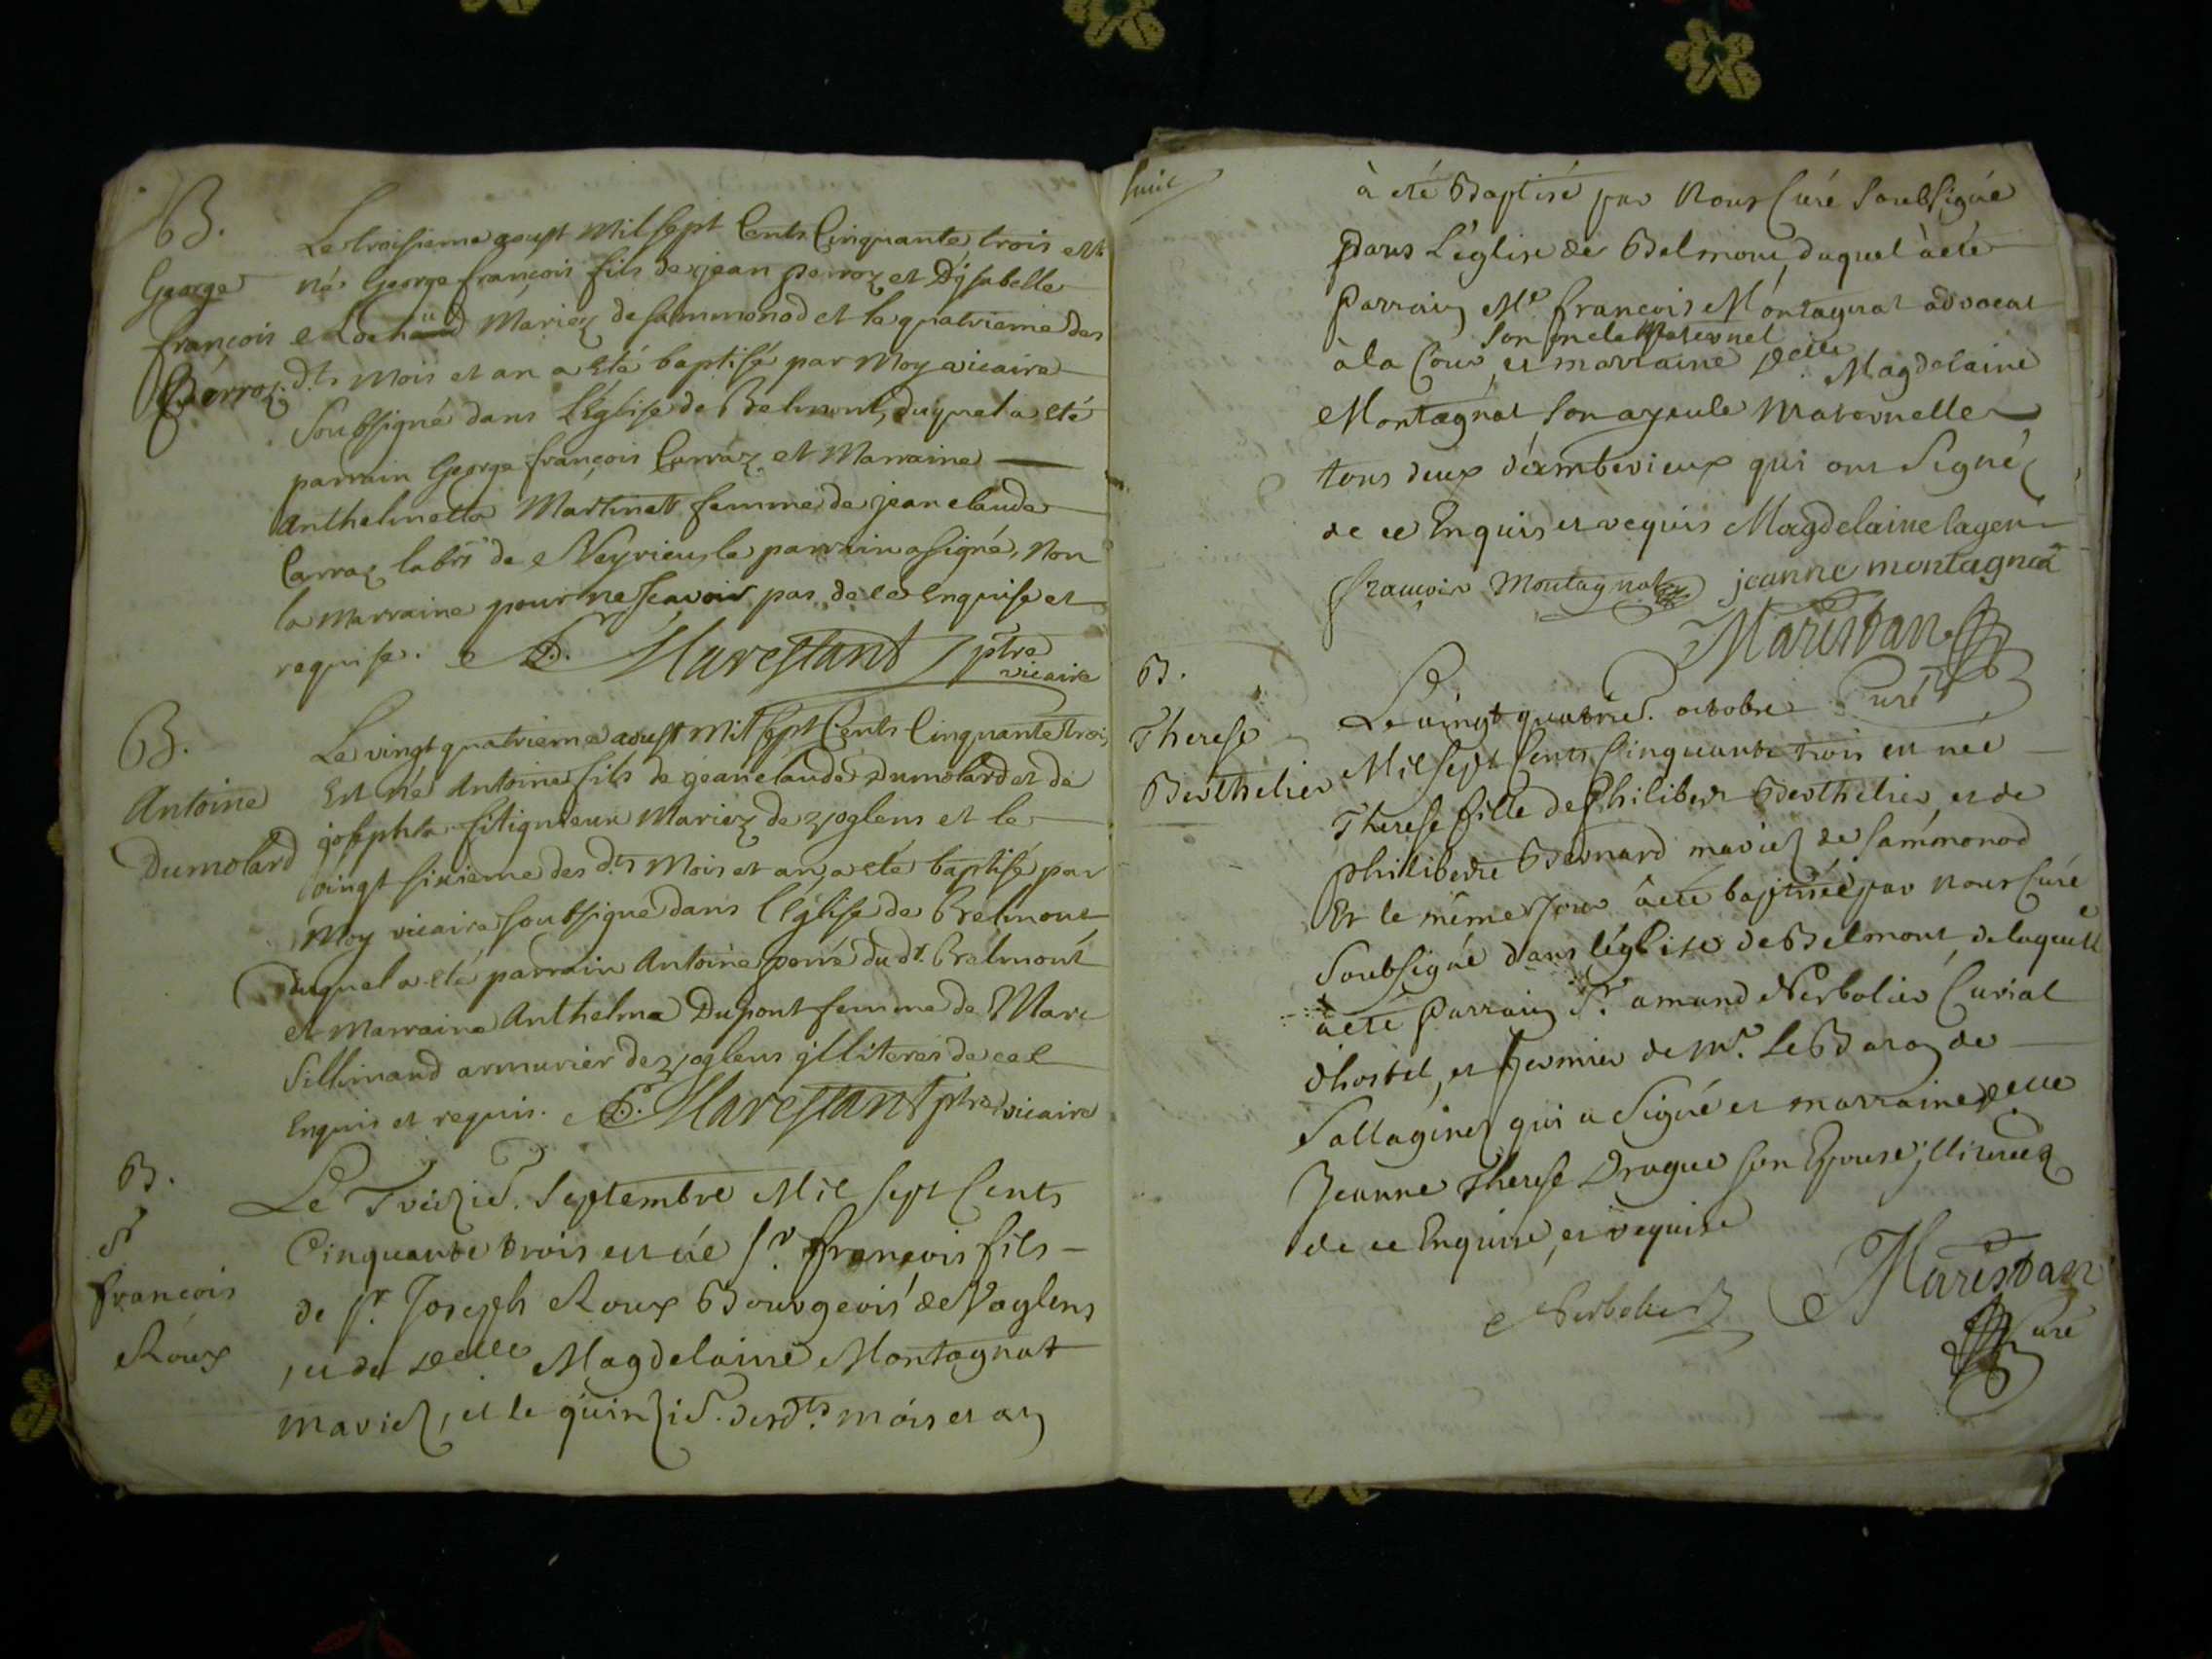 B.
George
françois
Perroz
Le troisieme aoust Mil sept Cents Cinquante trois est
né George françois fils de jean perroz et D'jsabelle
Mariez de sammonod et le quatrieme des
d.ts Mois et an a eté baptisé par Moy vicaire
Soubsigné dans L'Eglise de Belmont, duquel a eté
parrain George françois Carraz et Marraine
anthelmetta Martinet femme de jean claude
Carraz labr. de Neyrieu, le parrain a signé, Non
la Marraine pour ne scavoir pas, de ce Enquise et
requise. Marestant ptre
vicaire
B.
Antoine
Dumolard
Le vingt quatrieme aoust Mil sept Cents Cinquante trois
Est né Antoine fils de jean claude Dumolard et de
josephta Mariez de yoglens et le
vingt sixieme des d.ts Mois et an, a eté baptisé par
Moy vicaire soubsigné dans l'Eglise de Belmont
duquel a eté parrain Antoine perré du d.t Belmont
et Marraine Anthelma Dupont femme de Marc
Sillimand armurier de yoglens jlliteres de ce
Enquis et requis. Marestant ptre vicaire
B.
Sr
françois
Roux
Le Treizie. Septembre Mil sept Cents
Cinquante trois est né Sr. françois fils
de Sr. Joseph Roux Bourgeois de Voglens
, et de Delle Magdelaine Montagnat
mariez, et le quinzie. desd.ts mois et an
suite
à eté Baptisé par Nous Curé soubsigné
Dans L'église de Belmont, duquel à eté
Parrain Me françois Montagnat advocat
son oncle Maternel
à la Cour, et marraine Delle Magdelaine
Montagnat son ayeule Maternelle
tous deux d'ambevieux qui ont Signéz
de ce Enquis et requis Magdelaine lageni
françois Montagnat jeanne montagnat
Maristan
Curé
B.
Therese
Berthelier
Le vingt quatrie. octobre
Mil sept Cents Cinquante trois est née
Therese fille de Philibert Berthelier, et de
philiberte Bernard mariez de sammonod
Et le même jour à eté baptisée par nous Curé
Soubsigné dans l'église de Belmont, de laquelle
à eté Parrain Sr. amand Nerbolier Curial
d'hostel, et fermier de Mr. Le Baron de
qui a Signé et marraine Delle
Jeanne Therese Drogue son Epouse, illiterée
de ce Enquise, et requise
Nerbolier Maristan
Curé